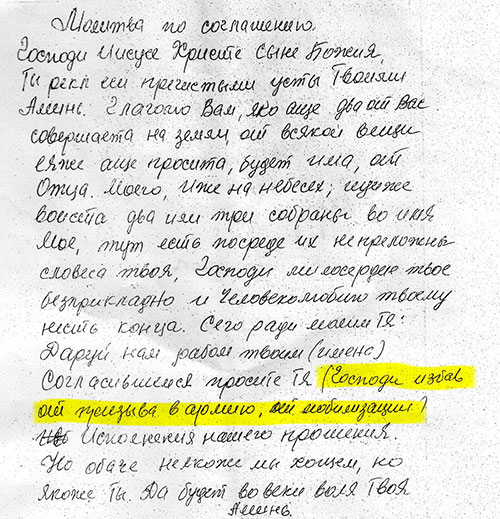 Молитва по соглашению.
Господи Иисусе Христе Сыне Божия,
Ты рекл еси пречистыми усты Твоими
Аминь. Глаголю Вам, яко аще два от Вас
совершаета на земли, от всякой вещи
ея же аще просита, будет има, от
Отца. Моего, Иже на небесех; идиже
воиста два или три собраны во имя
Мое, тут есть посреде их непреложны
словеса твоя, Господи милосердию твое
безприкладно и Человеколюбию твоему
несть конца. Сего ради молим Тя:
Даруй нам рабом твоим (имена)
Согласившимся просите Тя (Господи избав
от призыва в армию, от мобилизации)
Исполнения нашего прошения.
Но обаче не якоже мы хощем, но
якоже Ты. Да будет во веки воля Твоя
Аминь